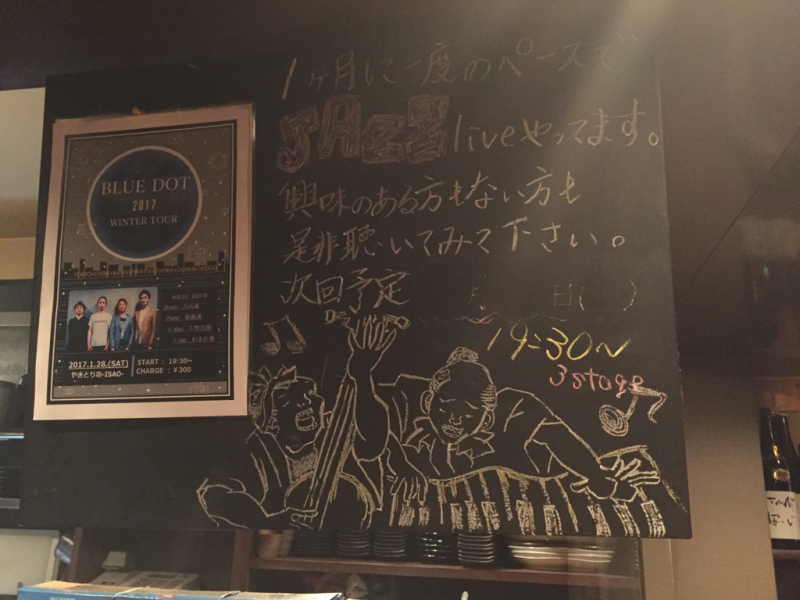 1ヶ月に一度のペースで
JAZZ liveやってます。
興味のある方もない方も
是非聴いてみて下さい。
次回予定 月 日( )
19:30〜
3stage
BLUE DOT
2017
WINTER TOUR
2017.1.28.(SAT)
やきとり坊-ISAO-
START : 19:30~
CHARGE : ¥300